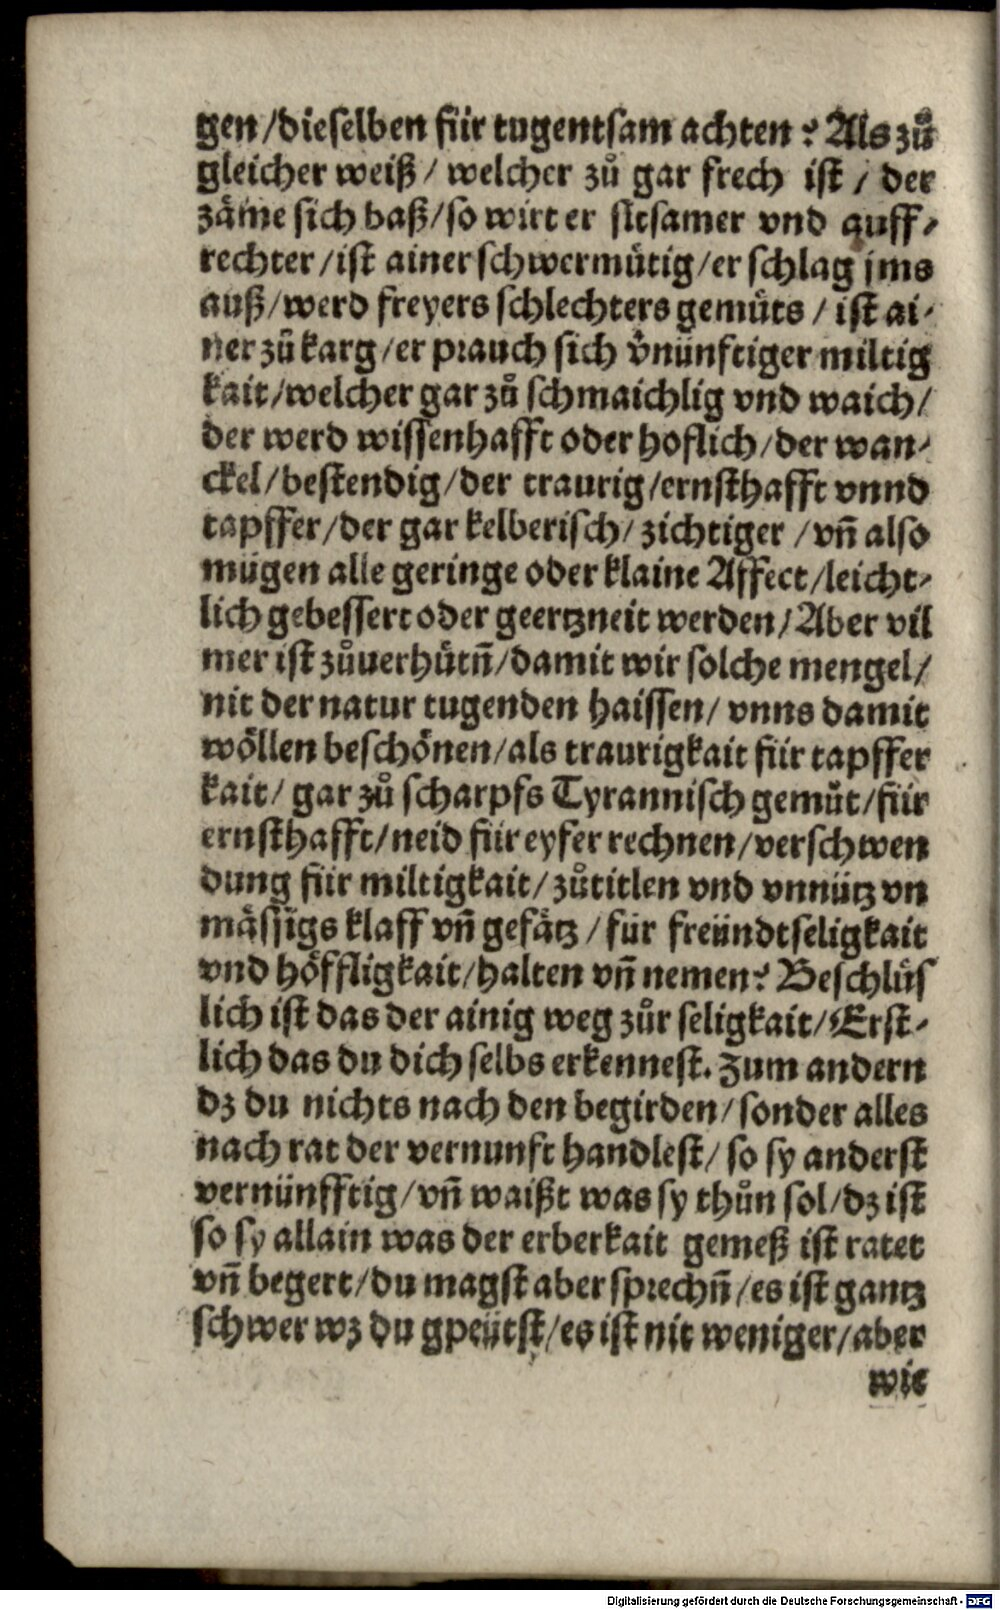 gen/dieselben für tugentsam achten? Als zů
gleicher weiß/ welcher zů gar frech ist/ der
zäme sich baß/so wirt er sitsamer vnd auff⸗
rechter/ist ainer schwermütig/er schlag jms
auß/werd freyers schlechters gemüts/ ist ai⸗
ner zů karg/er prauch sich v̈nünftiger miltig
kait/welcher gar zů schmaichlig vnd waich/
der werd wissenhafft oder hoflich/der wan⸗
ckel/bestendig/der traurig/ernsthafft vnnd
tapffer/der gar kelberisch/ zichtiger /vñ also
mügen alle geringe oder klaine Affect/leicht⸗
lich gebessert oder geertzneit werden/Aber vil
mer ist zůuerhütñ/damit wir solche mengel/
nit der natur tugenden haissen/ vnns damit
wöllen beschönen/als traurigkait für tapffer
kait/ gar zů scharpfs Tyrannisch gemüt/für
ernsthafft/neid für eyfer rechnen/verschwen
dung für miltigkait/zůtitlen vnd vnnütz vn
mässigs klaff vñ gefätz/für freündtseligkait
vnd höffligkait/halten vñ nemen? Beschlüs
lich ist das der ainig weg zůr seligkait/Erst⸗
lich das du dich selbs erkennest. Zum andern
dz du nichts nach den begirden/sonder alles
nach rat der vernunft handlest/ so sy anderst
vernünfftig/vñ waißt was sy thůn sol/dz ist
so sy allain was der erberkait gemeß ist ratet
vñ begert/du magst aber sprechñ/es ist gantz
schwer wz du gpeütst/es ist nit weniger/aber
wie
Digitalisierung gefördert durch die Deutsche Forschungsgemeinschaft - DFG